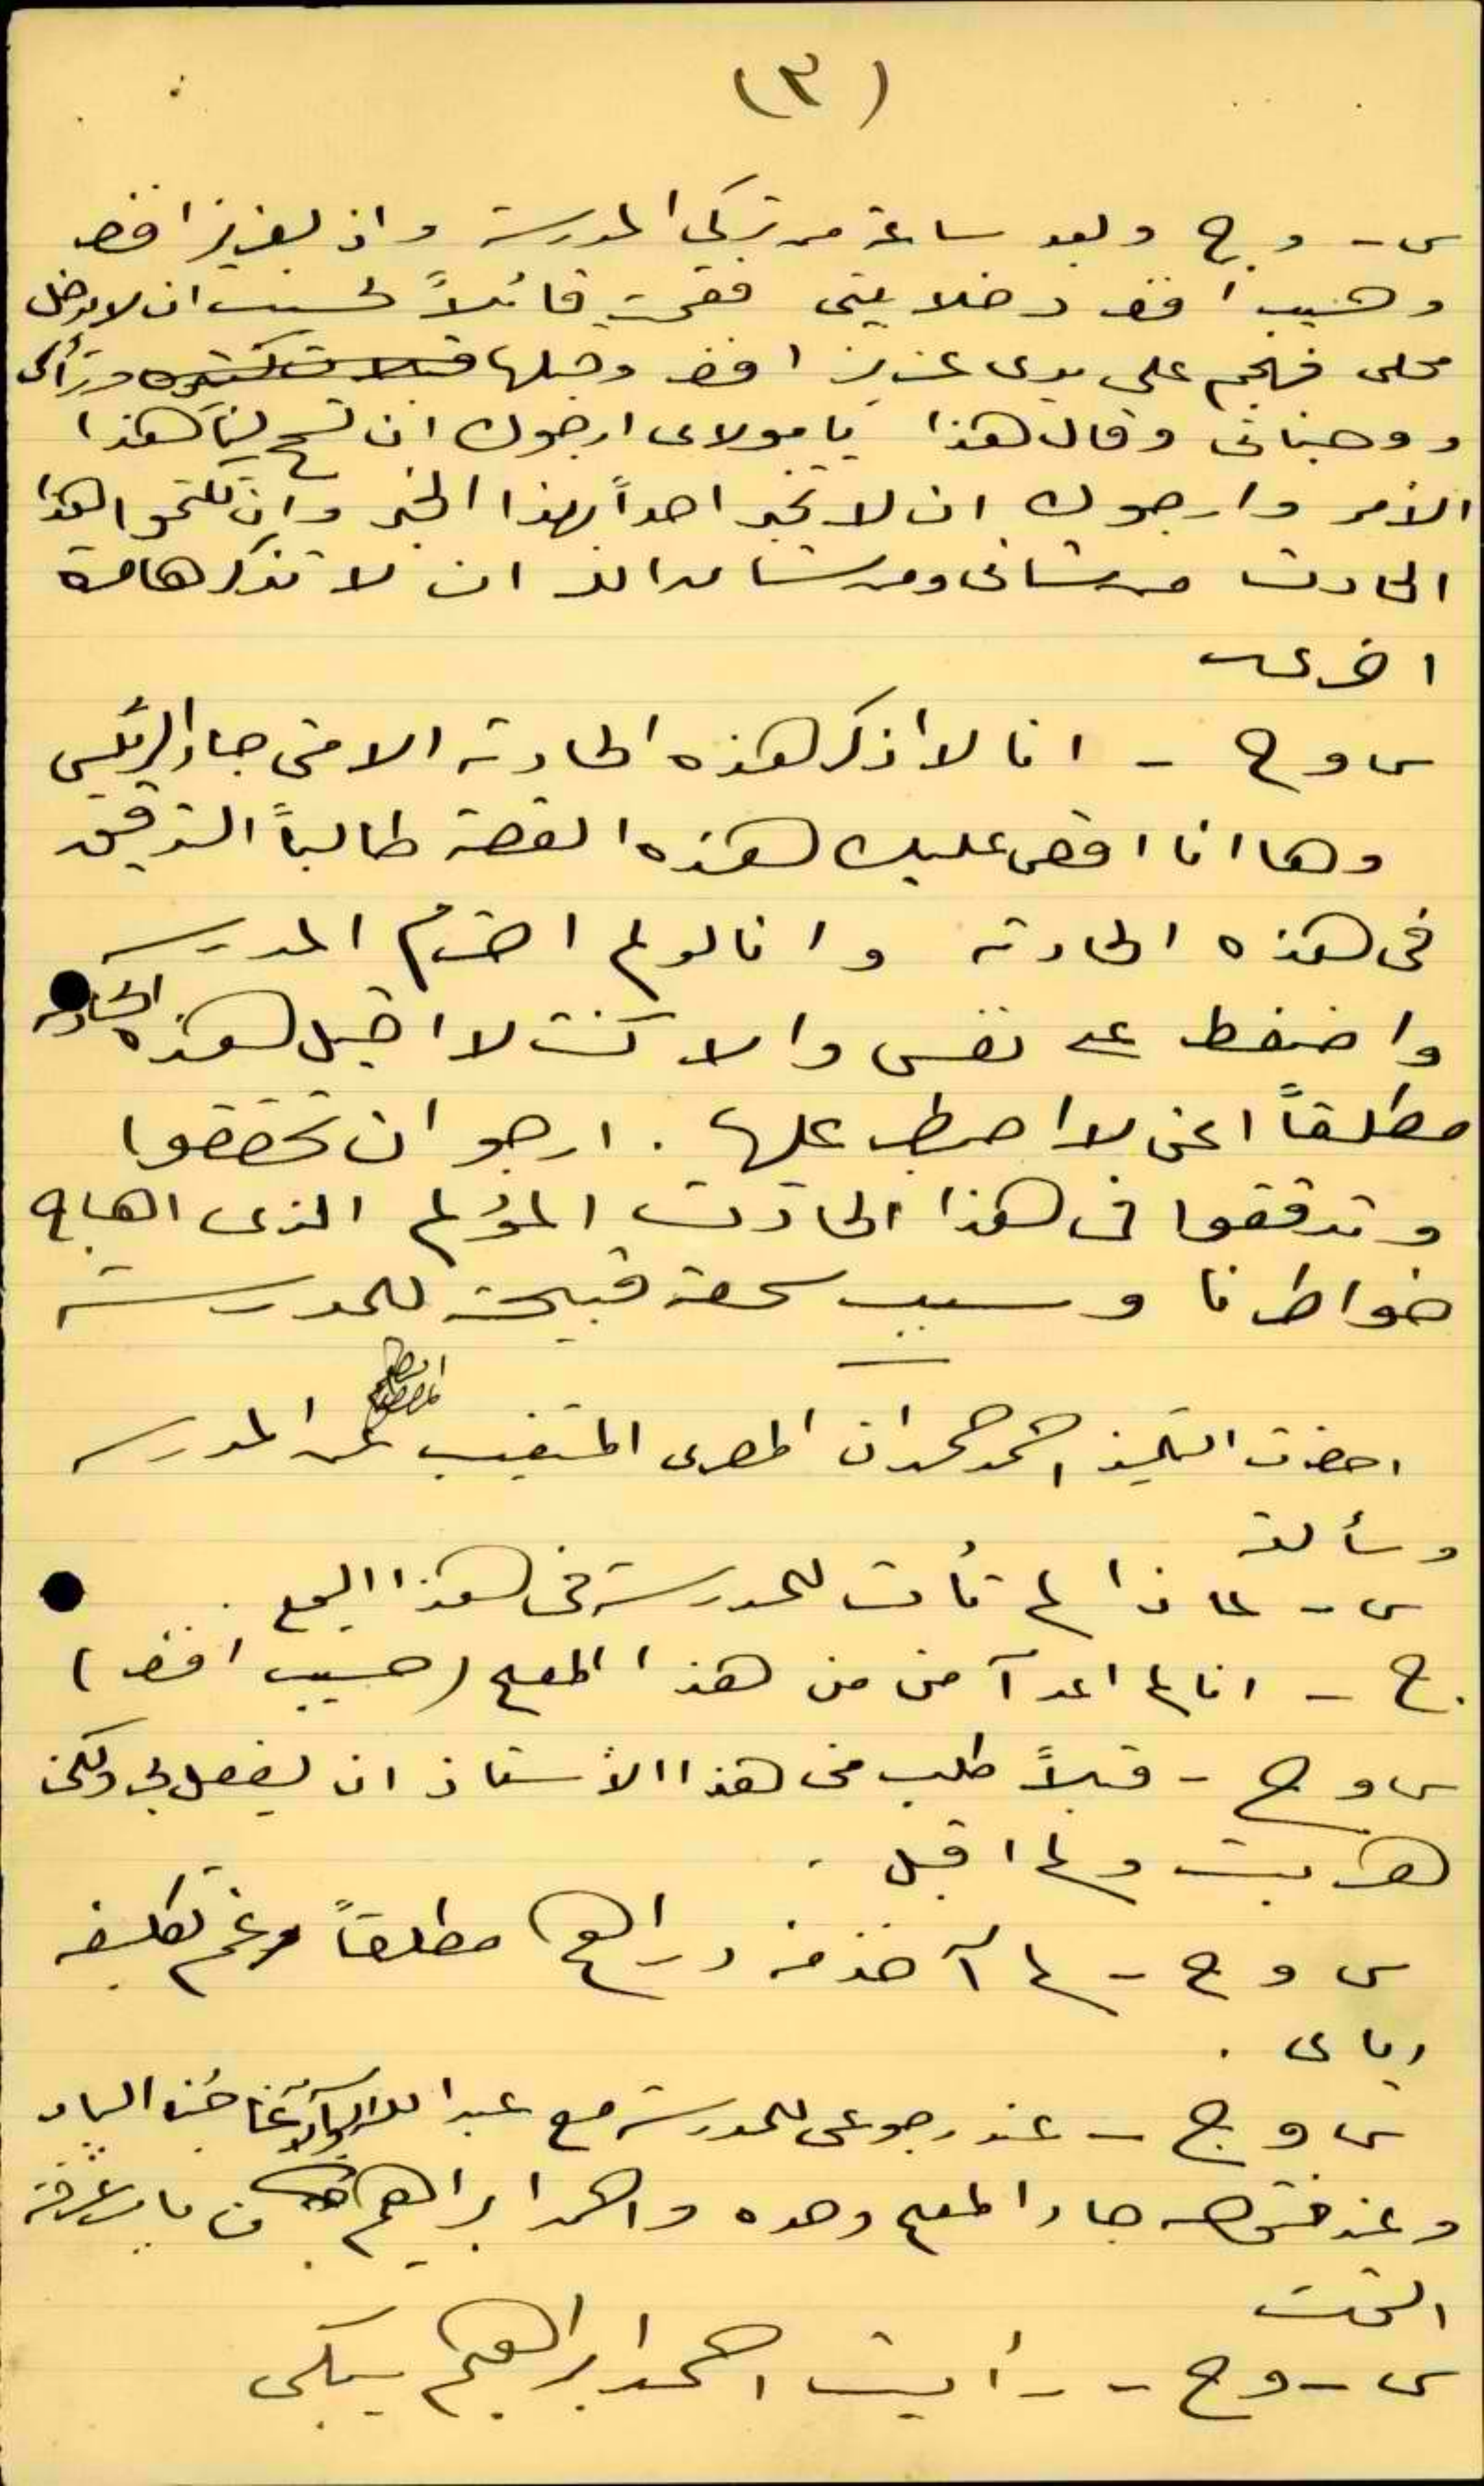 (٣)
س - و ج وبعد ساعة من تركي المدرسة واذ بعزيز افندي
وحسيب افندي دخلا بيتي فقمت قائلاً كسبت ان لا تدخل
محلي فهجم على يدي عزيز افندي وقبلها
ووجناتي وقال هذا يا مولاي ارجوك ان تسمح لنا هذا
الامر وارجوك ان لا تخبر احداً بهذا الخبر وان تكتموا هذا
الحادث من شأني ومن شأن الا ان لا تذكرها مرة
اخرى
س و ج - انا لا اذكر هذه الحادثة الا متى جاء الرئيس
وها انا اقص عليك هذه القصة طالباً التدقيق
في هذه الحادثة وانا لو لم احترم المدرسة
واضغط على نفسي والا كنت لا اقبل هذه الحادثة
مطلقاً اعني لا اصبر عليها . ارجو ان تحققوا
وتدققوا في هذا الحادث المؤلم الذي اهاج
خواطرنا وسبب سمعة قبيحة للمدرسة
احضرت التلميذ احمد حمدان المصري المتغيب عن المدرسة
وسألته
س - لماذا لم تأت للمدرسة في هذا اليوم .
ج - انا لم اعد آمن من هذا المعلم (حسيب افندي)
س و ج - قبلاً طلب مني هذا الأستاذ ان يفعل بي ولكن
هربت ولم اقبل .
س و ج - لم آخذ منه دراهم مطلقاً رغم تكليفه
اياي .
س و ج - عند رجوعي للمدرسة مع عبد الله الآغا الباب
وعند فتحه جاء المعلم وحده واحمد ابراهيم من باب غرفة
التخت
س - و ج - رأيت احمد ابراهيم يبكي